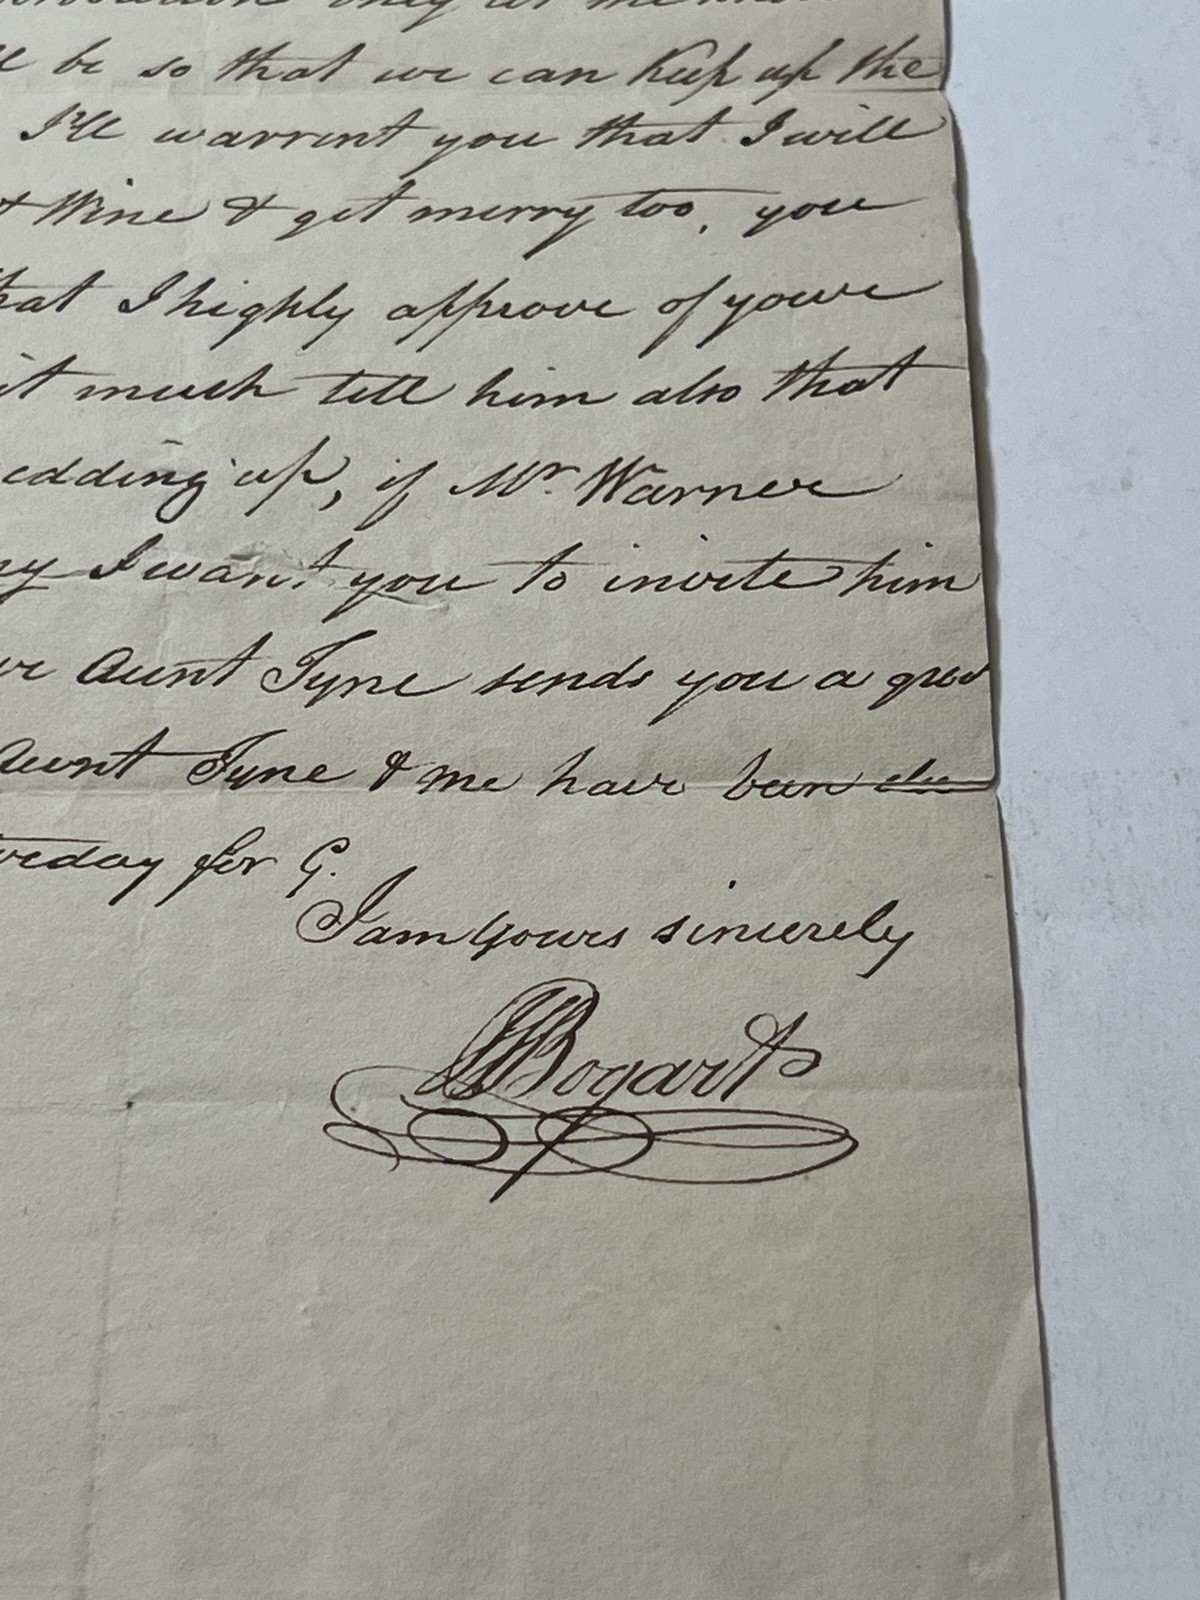 ll be so that we can Keep up the
I'll warrent you that I will
t Wine & get merry too, you
hat I highly approve of youre
it much tell him also that
edding up, if Mr. Warner
ny I want you to invite him
ve Aunt Tyne sends you a grea
Aunt Tyne & me have been
erday for G.
I am Yours sincerely
Bogart